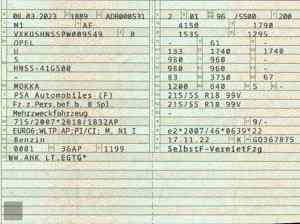 06.03.2023 1889 ADR000531 2 01 96 /5500 200
M1 AF 4150 1790
VXKUSHNSSPW009549 8 1535 1295
OPEL - 61 -
U 133 1740 1740
S 980 960 -
HNSS-41G500 980 960 -
- 83 3750 67
MOKKA 1200 640 5 -
PSA Automobiles (F) 215/55 R18 99V
Fz.z.Pers.bef.b. 8 Spl. 215/55 R18 99V
Mehrzweckfahrzeug - 9/-
715/2007*2018/1832AP
EURO6;WLTP;AP;PI/CI; M, N1 I e2*2007/46*0639*22
Benzin 17.11.22 K GQ367875
0001 36AP 1199 SelbstF-VermietFzg
WW.AHK LT.EGTG*